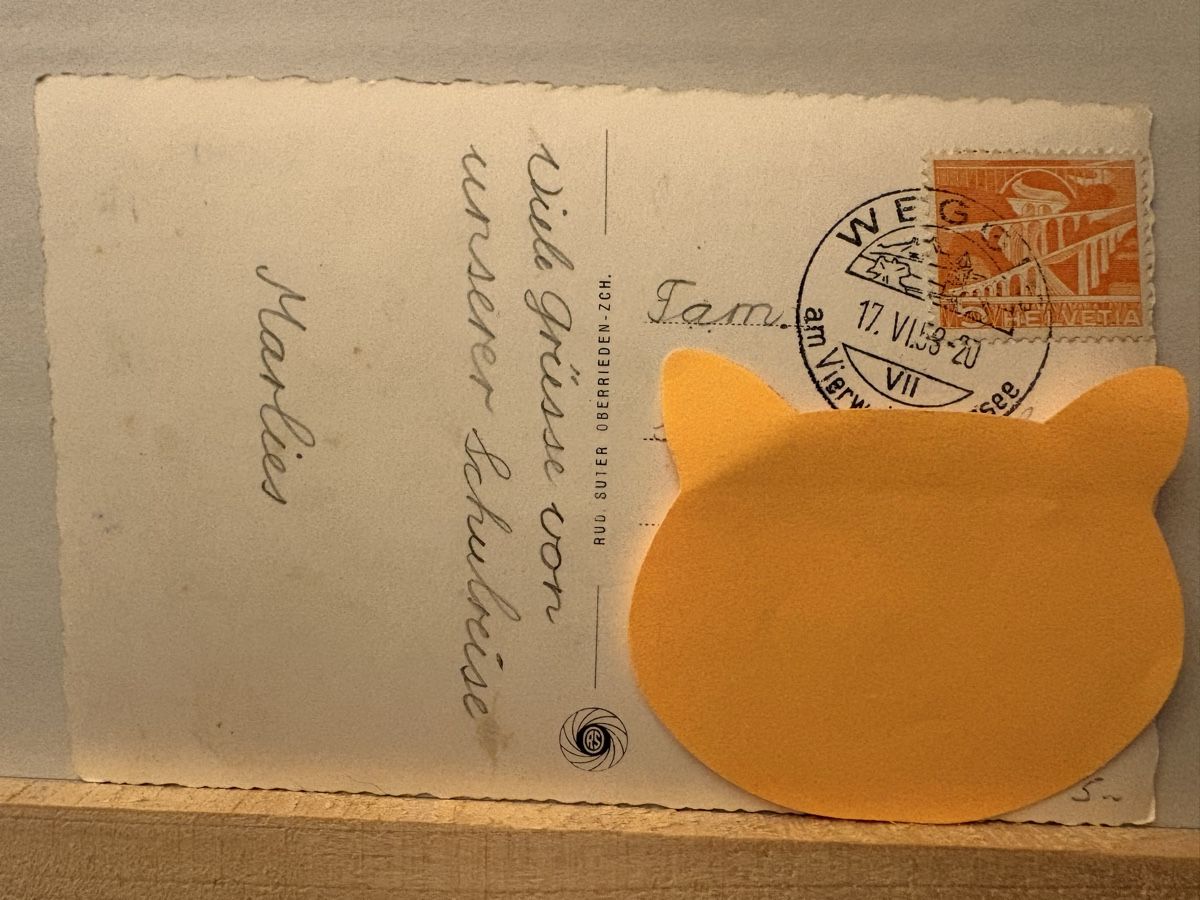 Viele Grüsse von
unserer Schulreise
Marlies
RUD. SUTER OBERRIEDEN-ZCH.
RS
Fam.
WEGG
17. VI.58-20
VII
am Vierw
5
HELVETIA
5